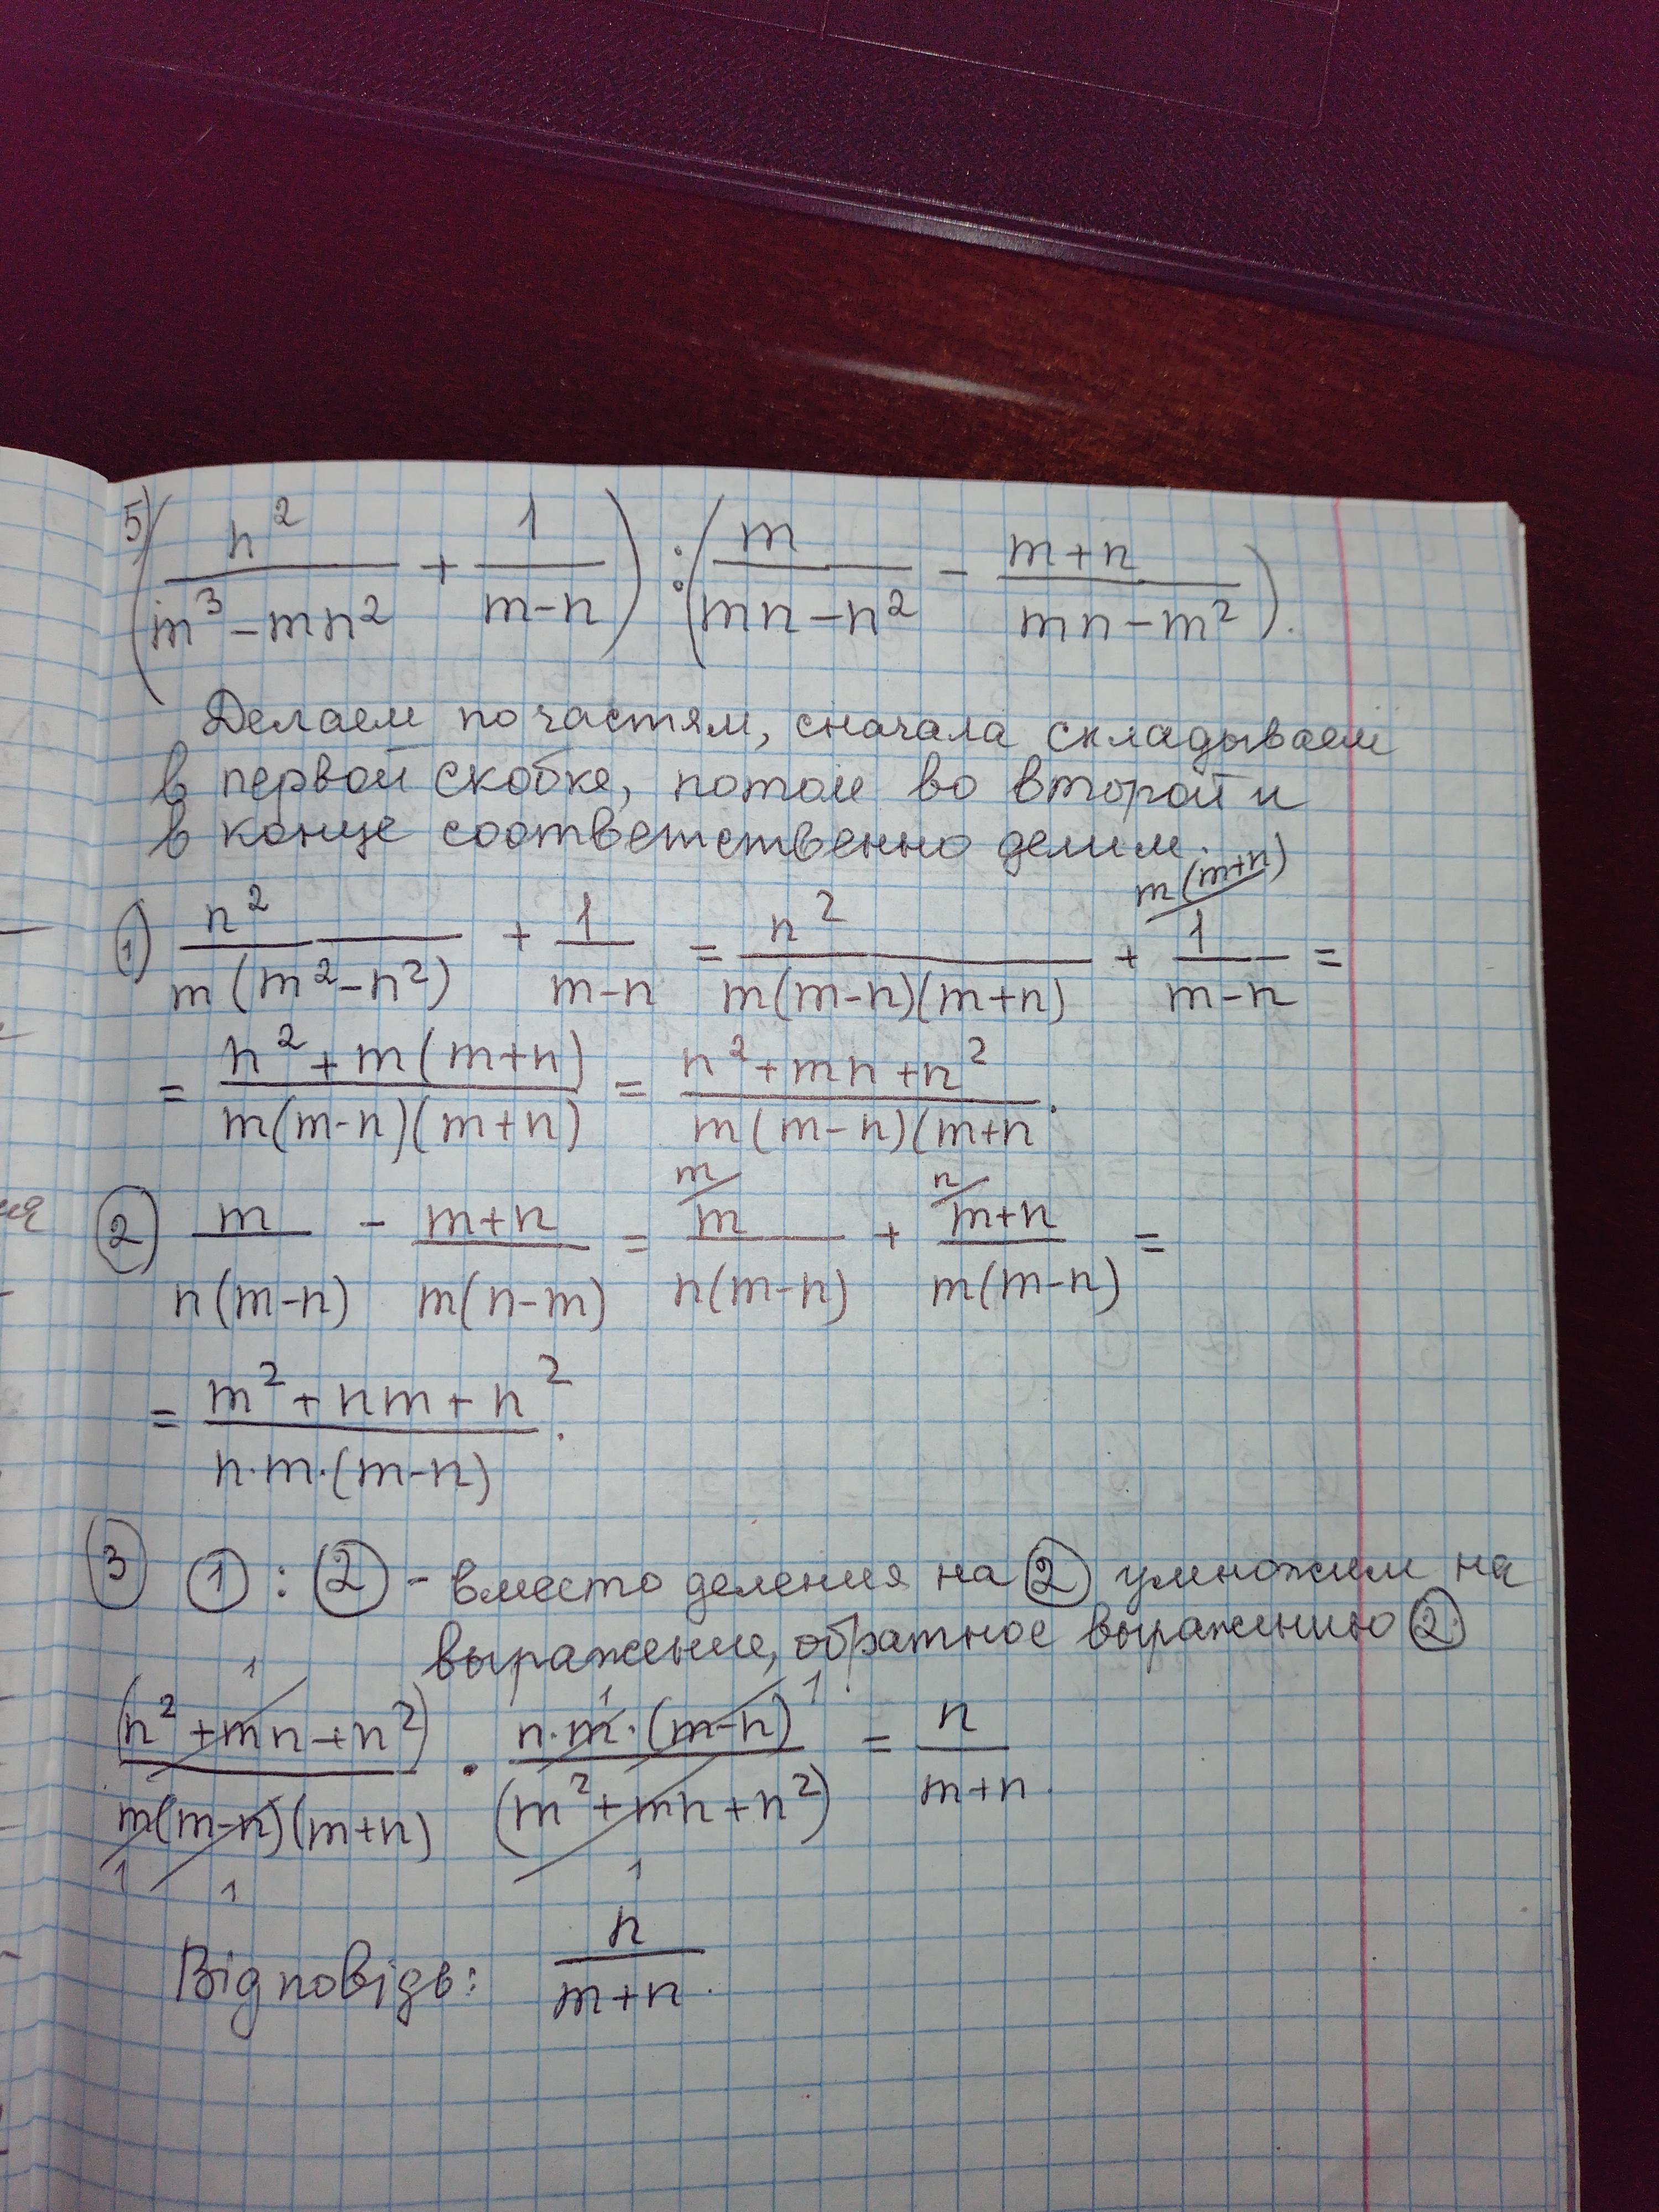 5) (n²/(m³-mn²) + 1/(m-n)) : (m/(mn-n²) - (m+n)/(mn-m²)).
Делаем по частям, сначала складываем
в первой скобке, потом во второй и
в конце соответственно делим.
① n²/(m(m²-n²)) + 1/(m-n) = n²/(m(m-n)(m+n)) + m(m+n)/ 1/(m-n) =
= (n²+m(m+n))/(m(m-n)(m+n)) = (n²+mn+n²)/(m(m-n)(m+n.
② m/(n(m-n)) - (m+n)/(m(n-m)) = m/ m/(n(m-n)) + n/ (m+n)/(m(m-n)) =
= (m²+nm+n²)/(n·m·(m-n)).
③ ① : ② - вместо деления на ② умножим на
выражение, обратное выражению ②
(n²+mn+n²)/(m(m-n)(m+n)) · n·m·(m-n)/(m²+mn+n²) = n/(m+n).
Відповідь: n/(m+n).